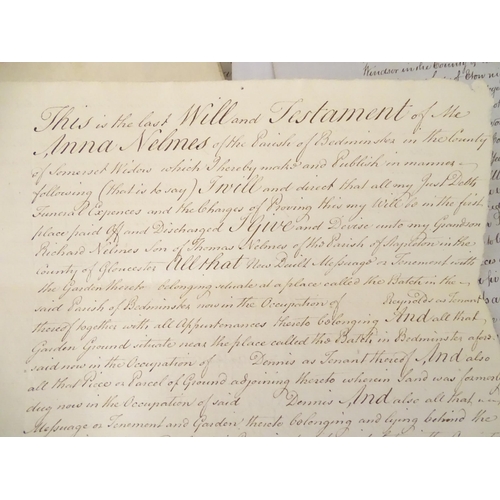 Windsor in the County of
This is the last Will and Testament of Me
Anna Nelmes of the Parish of Bedminster in the County
of Somerset Widow which I hereby make and Publish in manner
following (that is to say) I will and direct that all my Just Debts
Funeral Expences and the Charges of Proving this my Will be in the first
place paid Off and Discharged I Give and Devise unto my Grandson
Richard Nelmes Son of Thomas Nelmes of the Parish of Stapleton in the
County of Gloucester All that New Built Messuage or Tenement with
the Garden thereto belonging situate at a place called the Batch in the
said Parish of Bedminster now in the Occupation of Reynolds as Tenant
thereof together with all Appurtenances thereto belonging And all that
Garden Ground situate near the place called the Batch in Bedminster afore
said now in the Occupation of Dennis as Tenant thereof And also
all that Piece or Parcel of Ground adjoining thereto wherein Sand was formerly
dug now in the Occupation of said Dennis And also all that
Messuage or Tenement and Garden thereto belonging and lying behind the